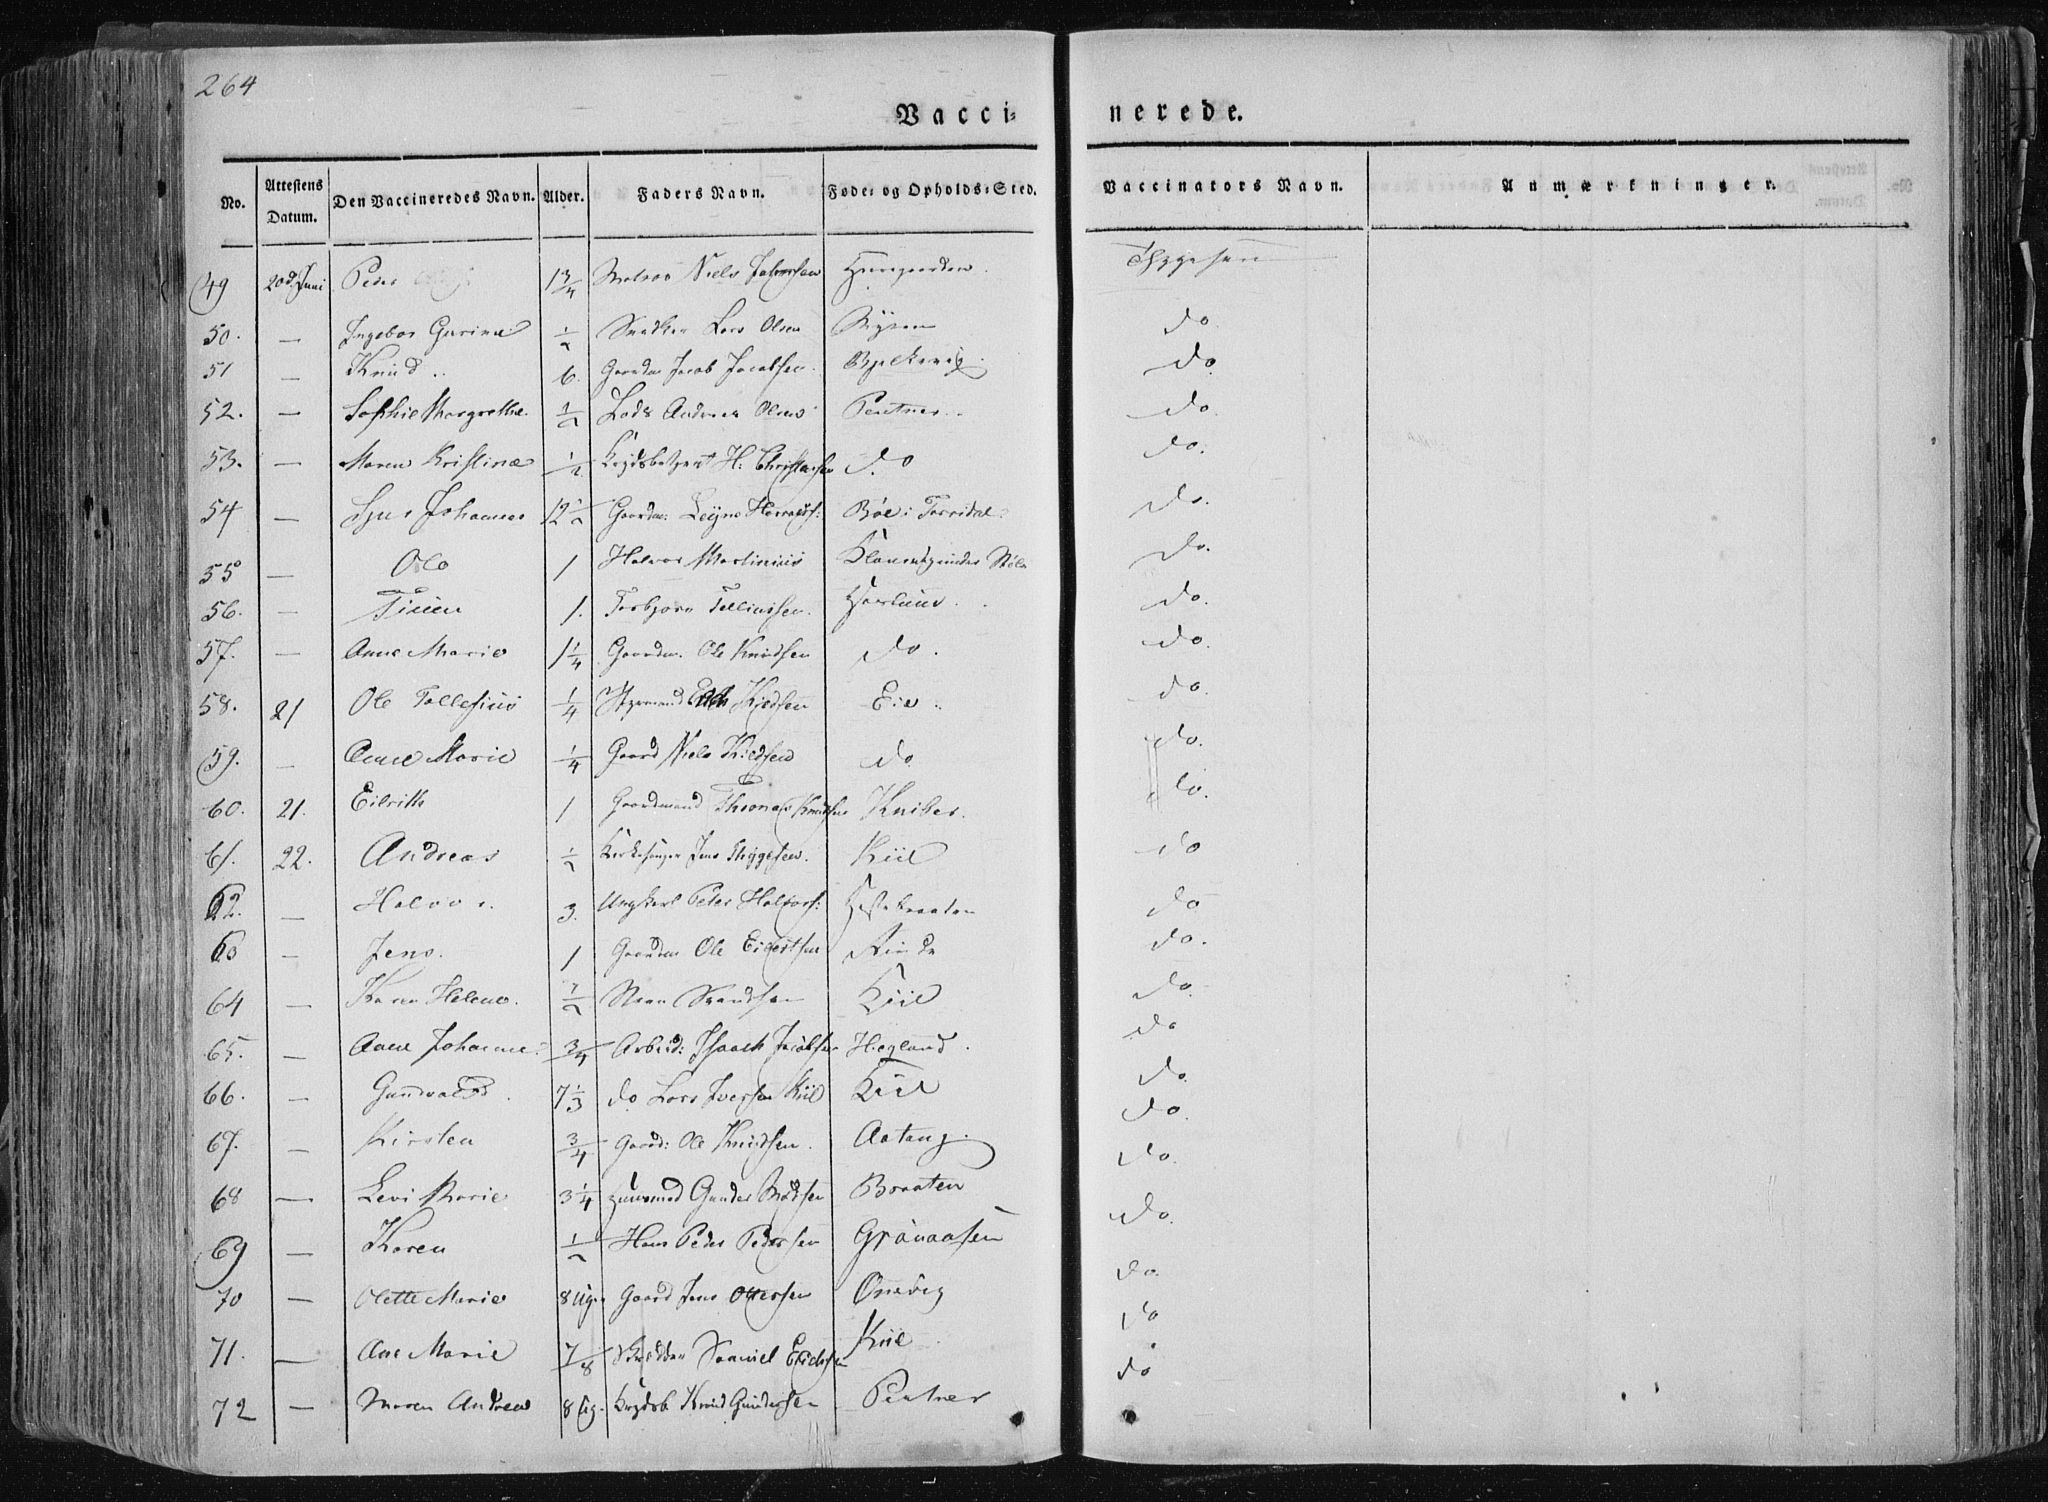 264
Vacci- nerede.
No. Attestens Datum. Den Vaccineredes Navn. Alder. Faders Navn. Føde- og Opholds-Sted. Vaccinators Navn. Anmærkninger.
49 20d Juni Peder 1 3/4 Matros Niels Thygesen
50. — Ingebor Gurine 1/2 Snedker Lars Olsen do
51 — Knud 6. Gaardm Jacob Jacobsen. do.
52. — Sophie Margrethe 1/2 Lods Andreas Olsen Pentner do.
53. — Maren Kristine 1/2 H: Christensen do do.
54 — Johannes 12 1/2 Gaardm: Bøe i Torridal do.
55 — Ole 1 Halvor Martinius do.
56. — 1. Torbjørn Tellefsen. do.
57. — Anne Marie 1 1/4 Gaardm. Ole Knudsen do. do.
58. 21 Ole Tellefius 1/4 Styrmand Kieldsen Eie do.
59. — Anne Marie 1/4 Gaard Niels Kieldsen do do.
60. 21. Eilrith 1 Gaardmand Thomas Knudsen Kniber. do.
61. 22. Andreas 1/2 Kirkesanger Jens Thygesen. Kiil do
62. — Halvor. 3. Ungkarl Peder Halvors: do
63 — Jens. 1 Gaardm Ole do.
64 — Karen Helene. 1/2 Kiil do.
65. — Anne Johanne 3/4 Arbeid: Isaach Jacobsen Hiegland. do
66. — Gundvald 7 1/3 do Lars Iversen Kiil Kiil do.
67. — Kirsten 3/4 Gaard: Ole Knudsen. do.
68 — Levi Marie 3 1/4 Huusmd Gunder Madsen Braaten do.
69 — Karen 1/2 Hans Peder Pedersen Grønaasen do.
70 — Olette Marie 8 Ug. Gaard Jens Ottersen do.
71. — Ane Marie 7/8 Skrædder Samuel Erichsen Kiil do
72 — Maren Andrea 8 Ug. Knud Gundersen Pentner do